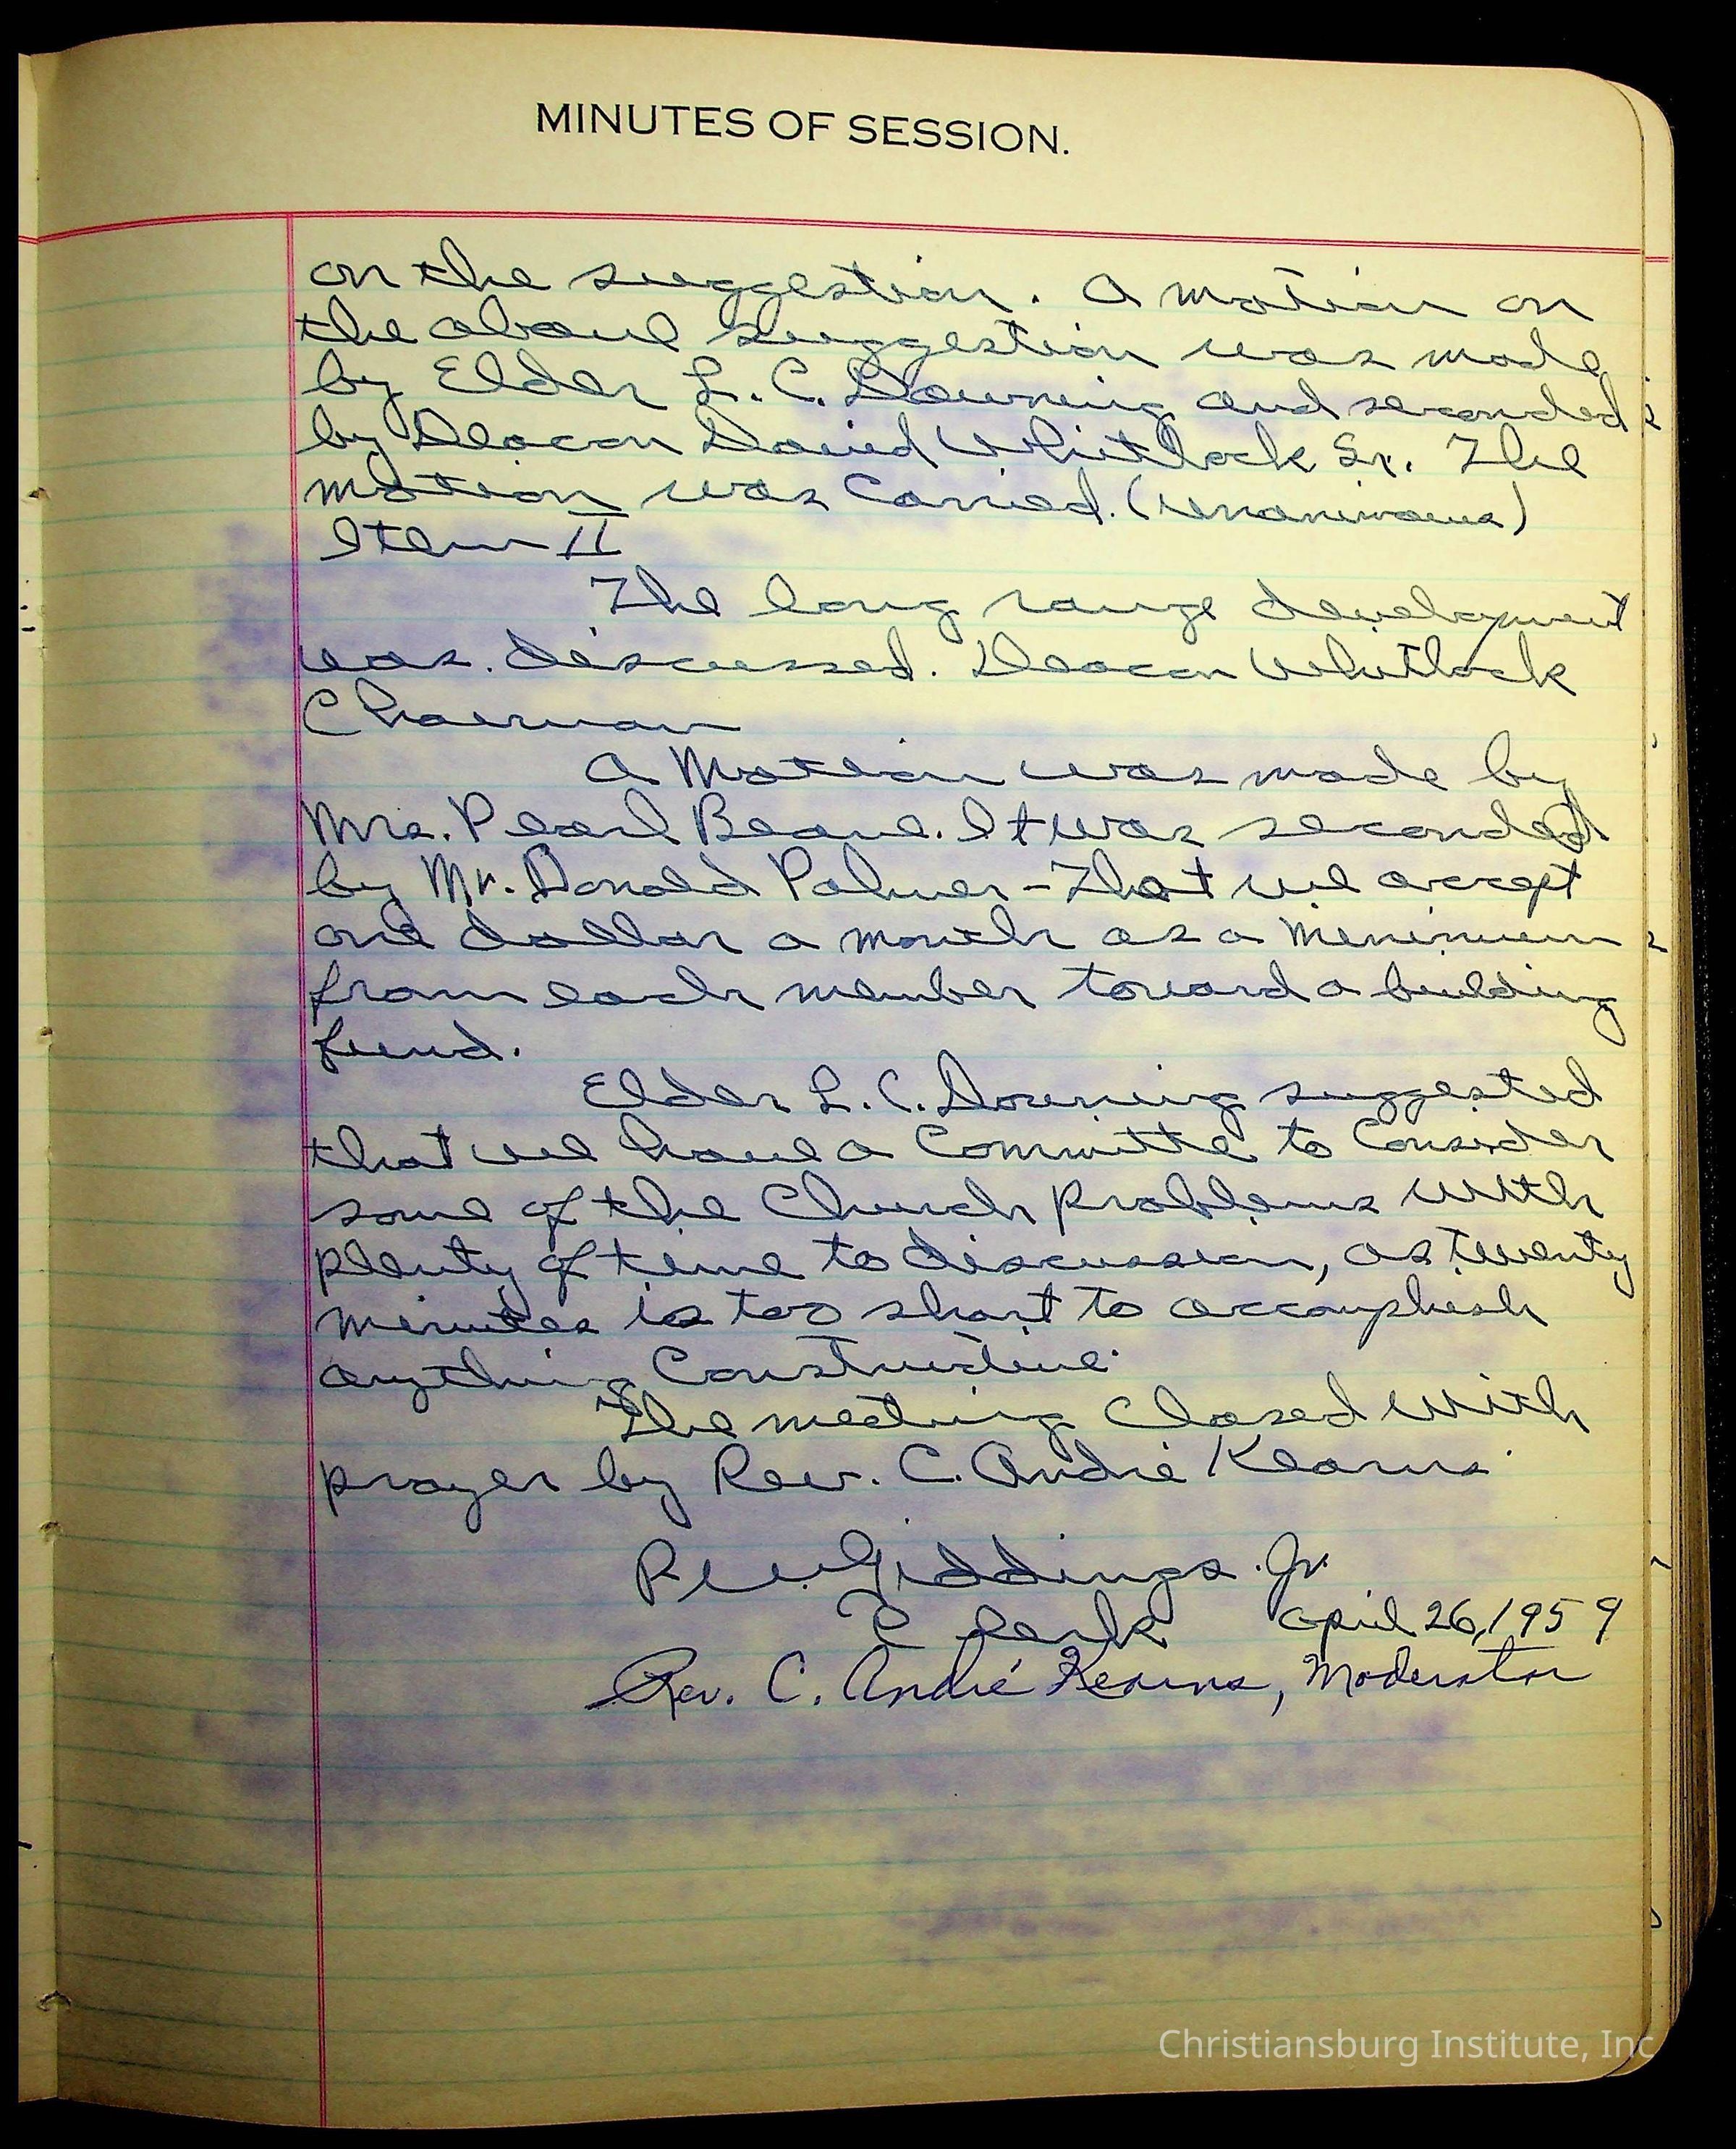 MINUTES OF SESSION.
on the suggestion. A motion on
the above suggestion was made
by Elder L. C. Downing and seconded
by Deacon David Whitlock Sr. The
motion was Carried. (Unanimous)
Item II
The long range development
was. discussed. Deacon Whitlock
Chairman
A Motion was made by
Mrs. Pearl Beane. It was seconded
by Mr. Donald Palmer - That we accept
one dollar a month as a minimum
from each member toward a building
fund.
Elder L. C. Downing suggested
that we have a Committe to Consider
some of the Church problems with
plenty of time to discussion, as twenty
minutes is too short to accomplish
anything Constructive.
The meeting Closed With
prayer by Rev. C. André Kearns
Giddings. Jr.
Clerk April 26, 1959
Rev. C. André Kearns, Moderator
Christiansburg Institute, Inc